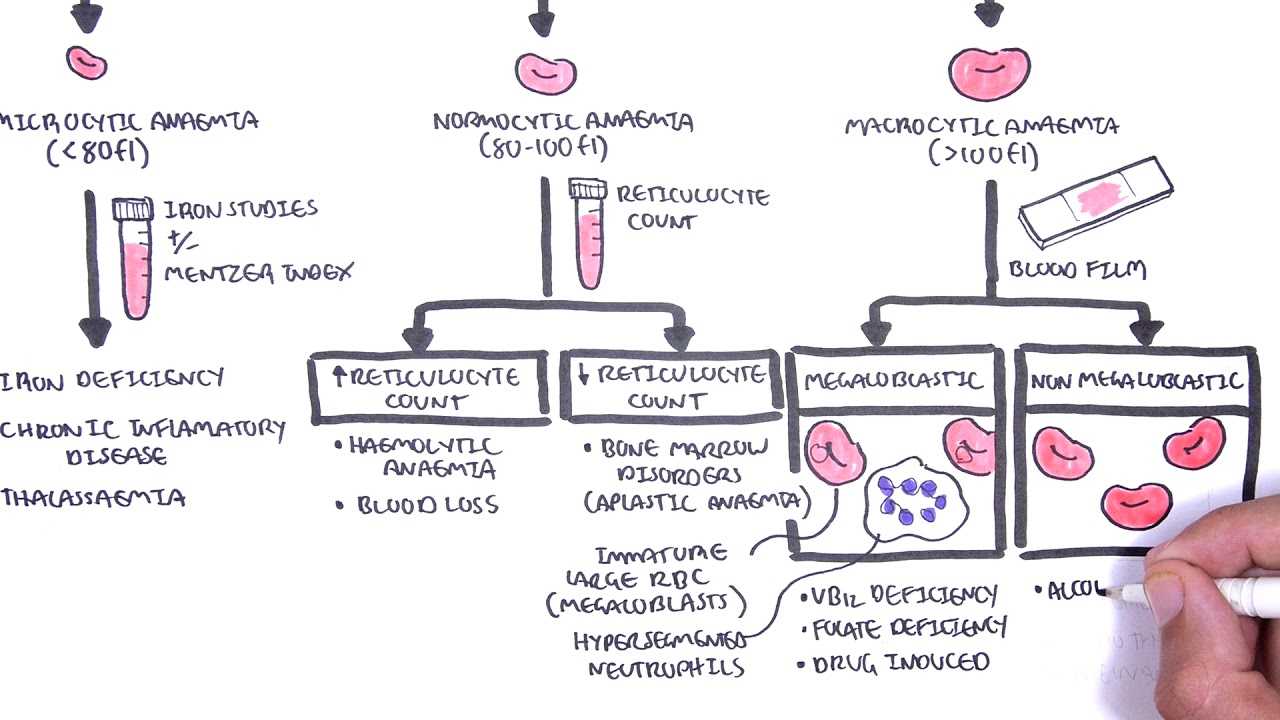 MICROCYTIC ANAEMIA
(<80fl)
IRON STUDIES
+/-
MENTZER INDEX
IRON DEFICIENCY
CHRONIC INFLAMATORY
DISEASE
THALASSAEMIA
NORMOCYTIC ANAEMIA
(80-100fl)
RETICULOCYTE
COUNT
↑ RETICULOCYTE
COUNT
• HAEMOLYTIC
ANAEMIA
• BLOOD LOSS
↓ RETICULOCYTE
COUNT
• BONE MARROW
DISORDERS
(APLASTIC ANAEMIA)
MACROCYTIC ANAEMIA
(>100fl)
BLOOD FILM
MEGALOBLASTIC
IMMATURE
LARGE RBC
(MEGALOBLASTS)
HYPERSEGMENTED
NEUTROPHILS
• VB12 DEFICIENCY
• FOLATE DEFICIENCY
• DRUG INDUCED
NON MEGALOBLASTIC
• ALCO